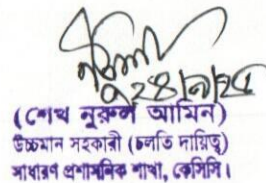 ২৪/৯/২৫
(শেখ নুরুল আমিন)
উচ্চমান সহকারী (চলতি দায়িত্ব)
সাধারণ প্রশাসনিক শাখা, কেসিসি।